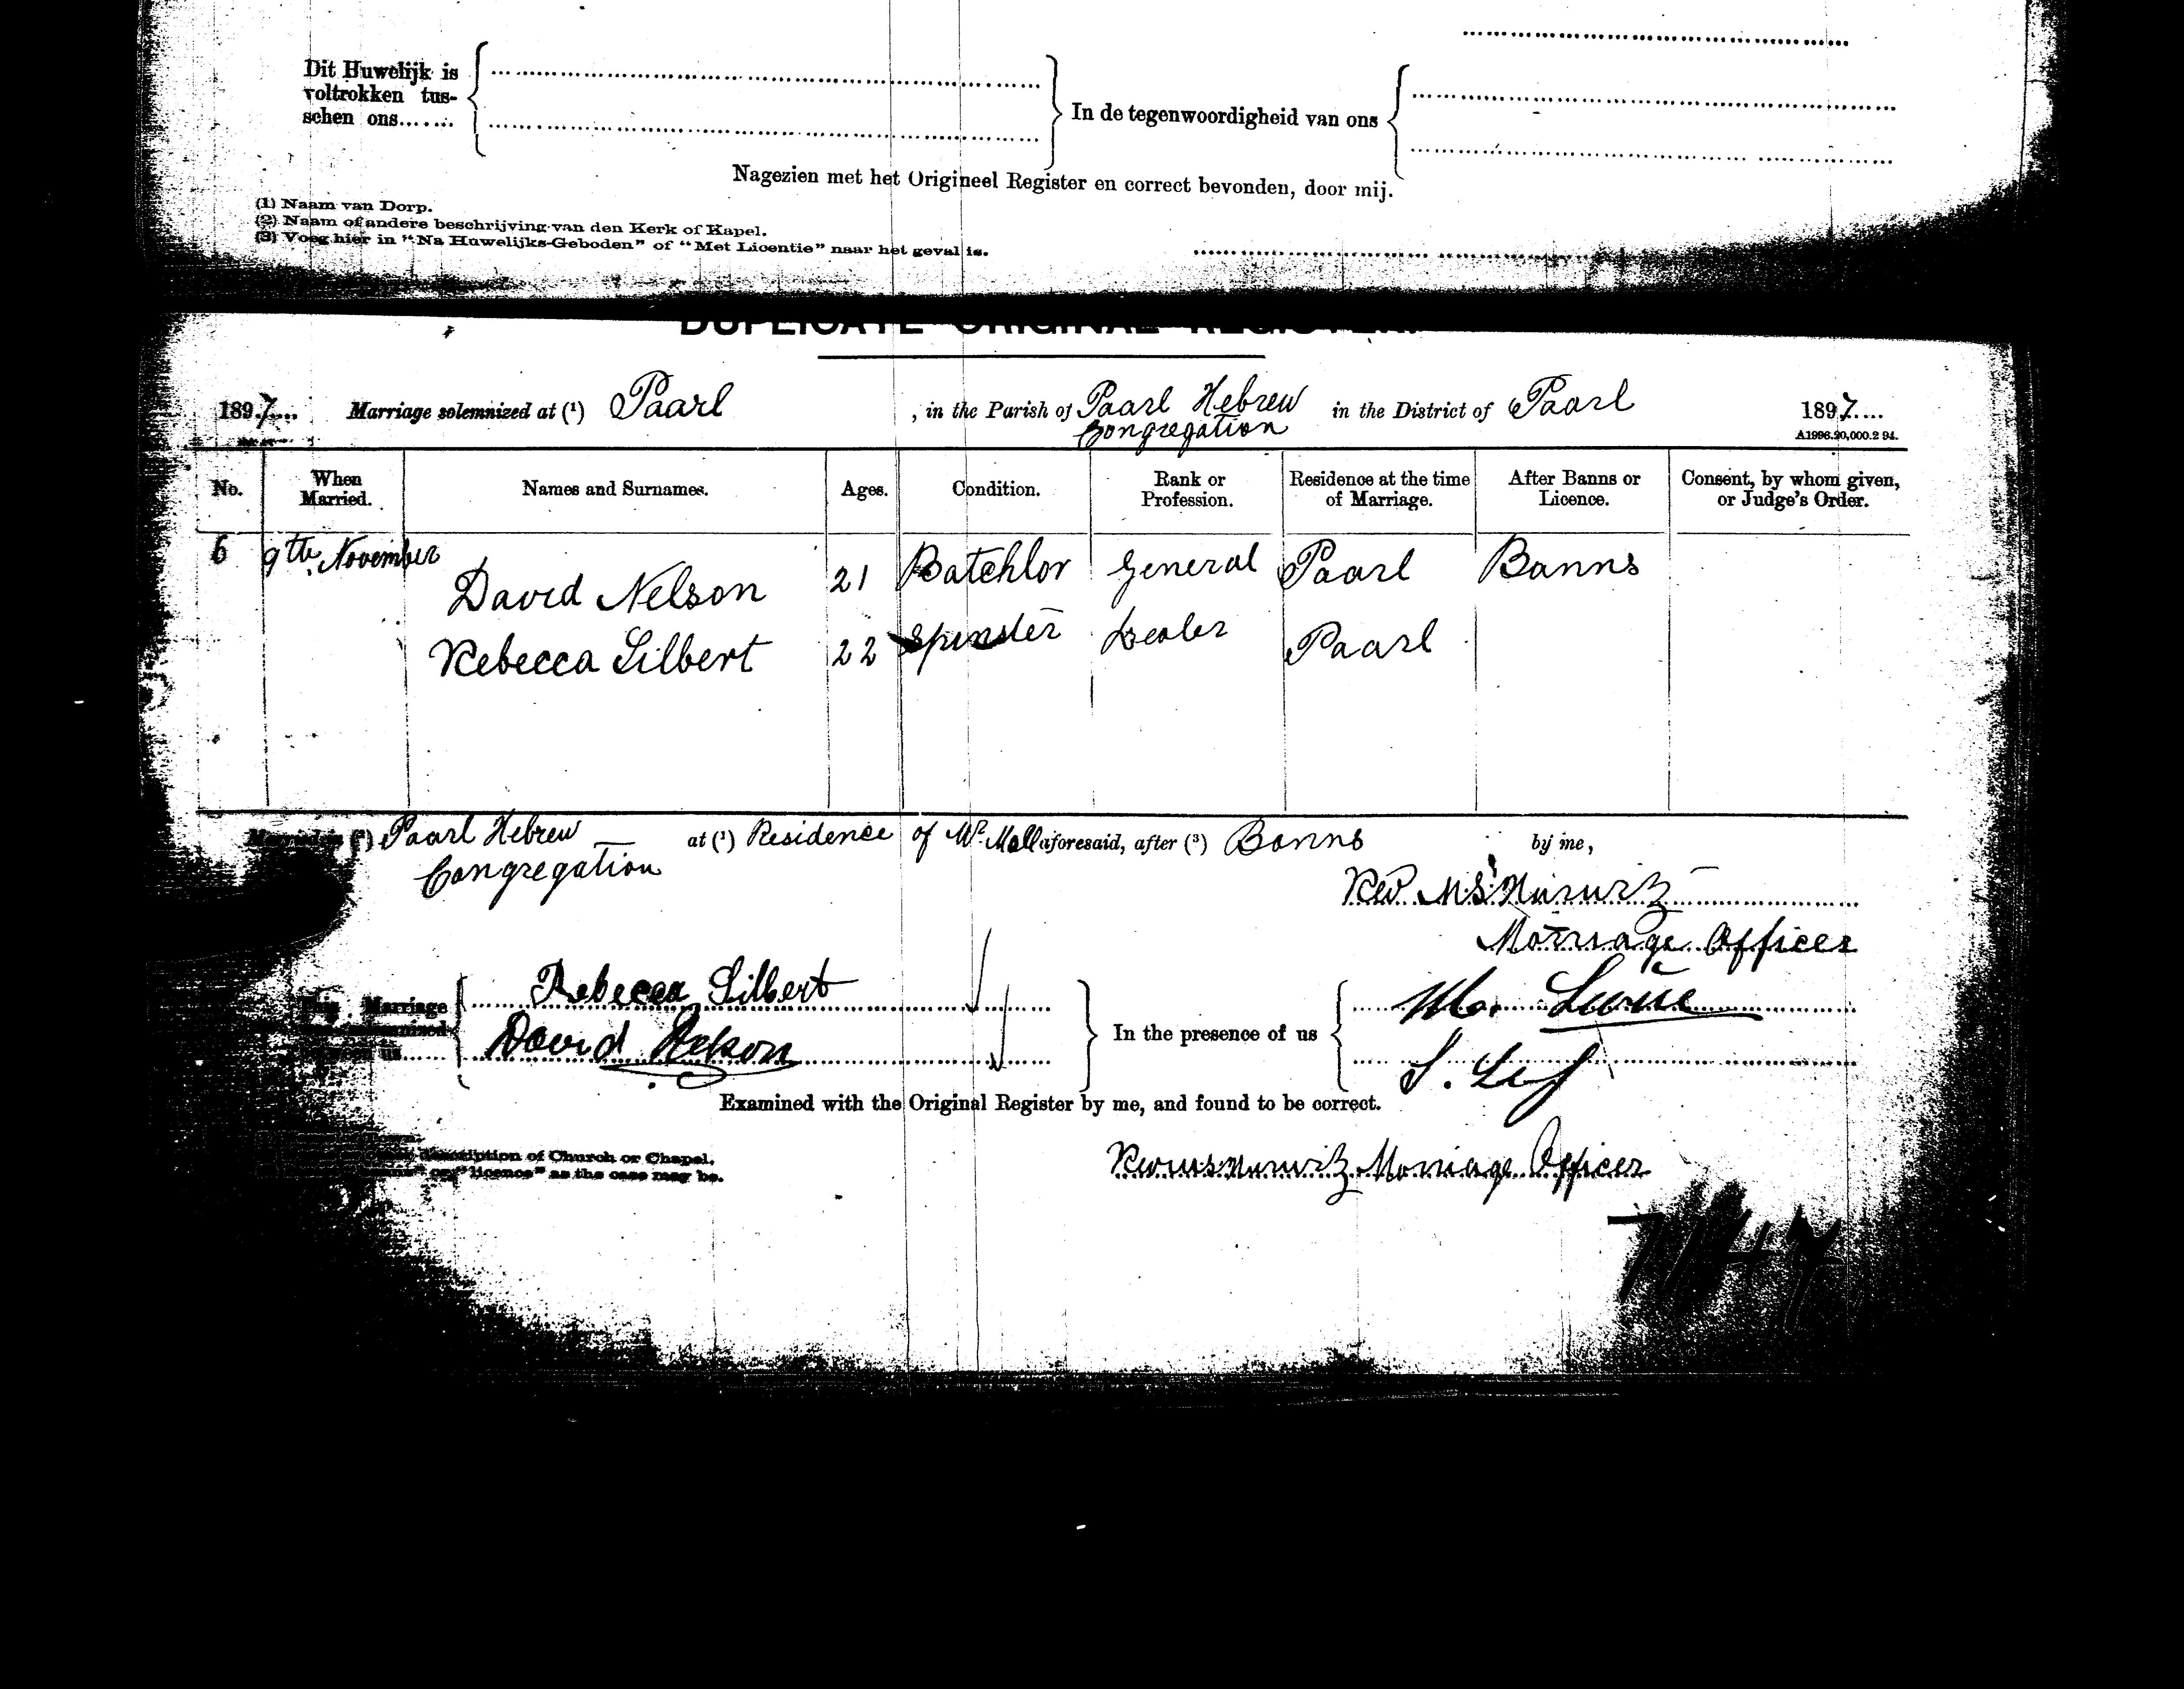 Dit Huwelijk is
voltrokken tus-
schen ons....... In de tegenwoordigheid van ons
Nagezien met het Origineel Register en correct bevonden, door mij.
(1) Naam van Dorp.
(2) Naam of andere beschrijving van den Kerk of Kapel.
(3) Voeg hier in "Na Huwelijks-Geboden" of "Met Licentie" naar het geval is.
DUPLICATE ORIGINAL REGISTER.
1897.... Marriage solemnized at (1) Paarl , in the Parish of Paarl Hebrew in the District of Paarl 1897....
Congregation
A1996.20,000.2 94.
No. When Married. Names and Surnames. Ages. Condition. Rank or Profession. Residence at the time of Marriage. After Banns or Licence. Consent, by whom given, or Judge's Order.
6 9th November David Nelson 21 Batchlor General Paarl Banns
Rebecca Silbert 22 Spinster Dealer Paarl
Married in (2) Paarl Hebrew at (1) Residence of Mr. Moll aforesaid, after (3) Banns by me,
Congregation
Rev M S Hurwitz
Marriage Officer
This Marriage Rebecca Silbert
David Nelson
In the presence of us
Examined with the Original Register by me, and found to be correct.
description of Church or Chapel.
or "licence" as the case may be.
Rev M S Hurwitz Marriage Officer